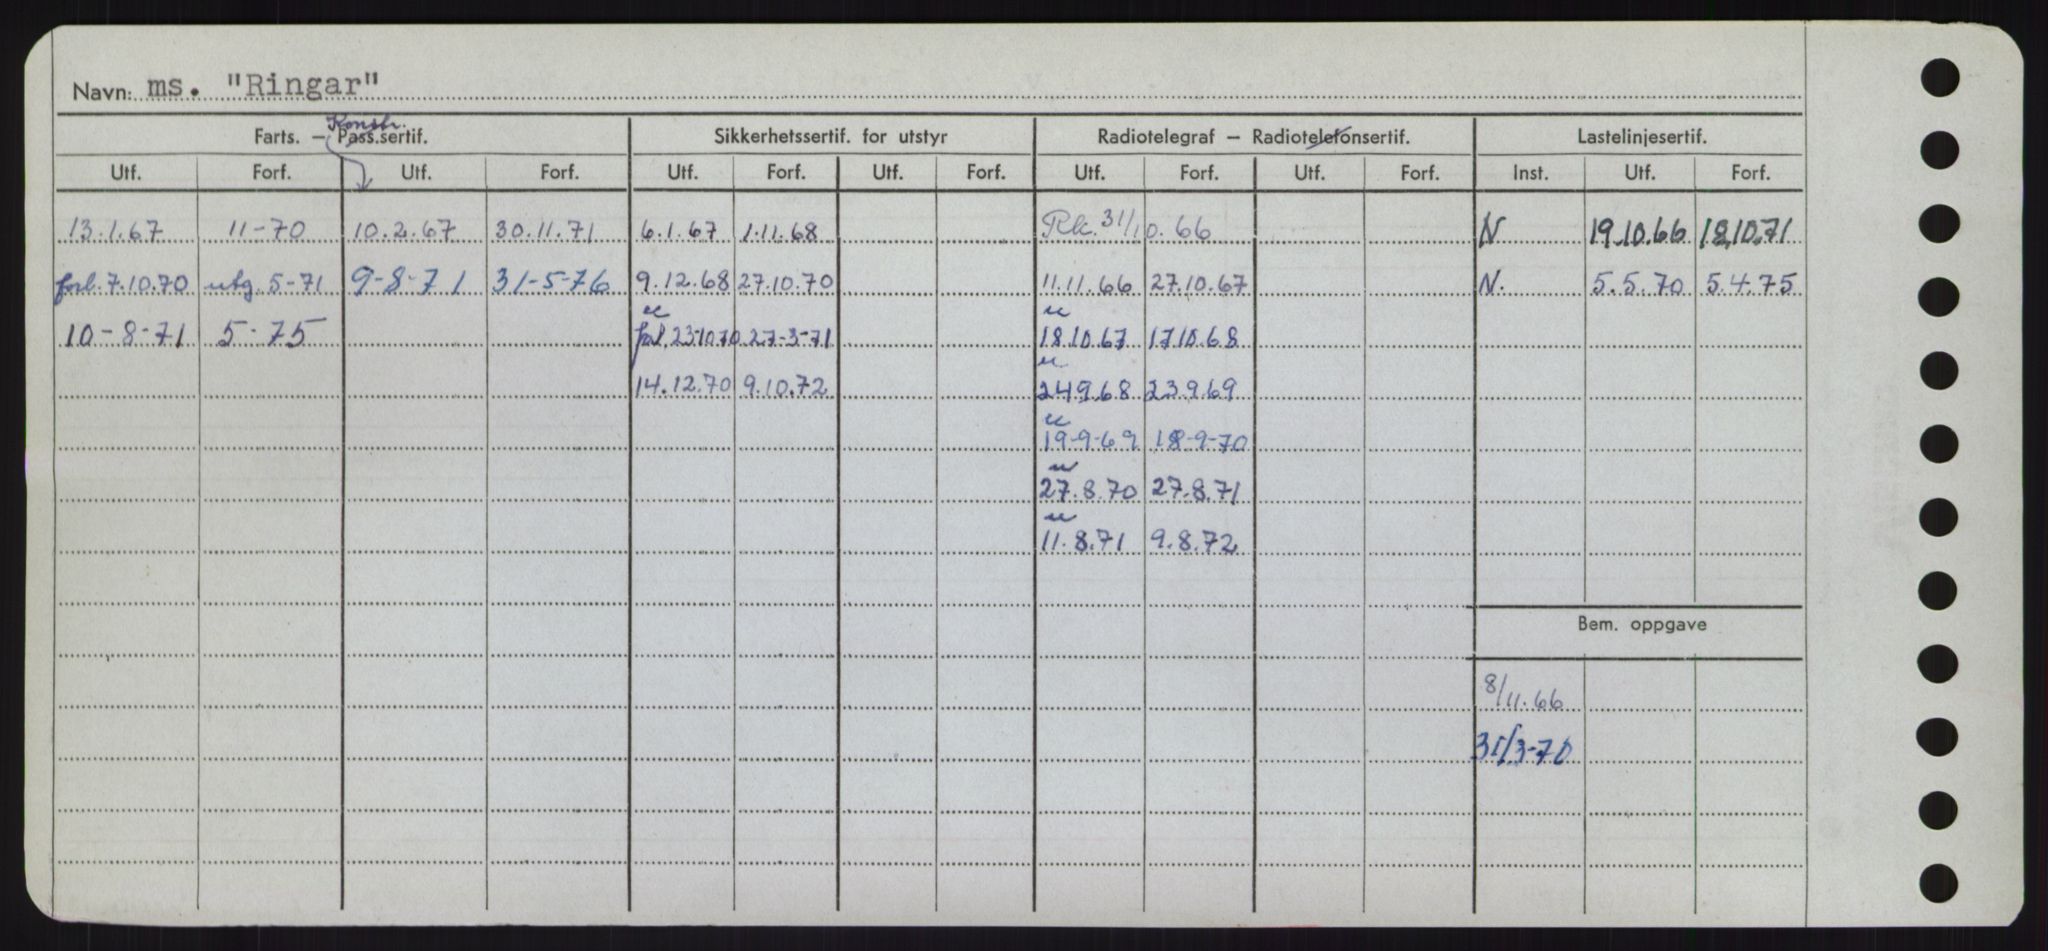 Navn: ms. "Ringar"
Konstr.
Farts. – Pass.sertif. Sikkerhetssertif. for utstyr Radiotelegraf – Radiotelefonsertif. Lastelinjesertif.
Utf. Forf. Utf. Forf. Utf. Forf. Utf. Forf. Utf. Forf. Utf. Forf. Inst. Utf. Forf.
13.1.67 11-70 10.2.67 30.11.71 6.1.67 1.11.68 Rk. 31/10.66 N 19.10.66 18.10.71
forl. 7.10.70 utg. 5-71 9-8-71 31-5-76 9.12.68 27.10.70 11.11.66 27.10.67 N. 5.5.70 5.4.75
10-8-71 5-75 forl. 23-10 70 27-3-71 18.10.67 17.10.68
14.12.70 9.10.72 24.9.68 23.9.69
19-9-69 18-9-70
27.8.70 27.8.71
11.8.71 9.8.72
Bem. oppgave
8/11.66
31/3-70